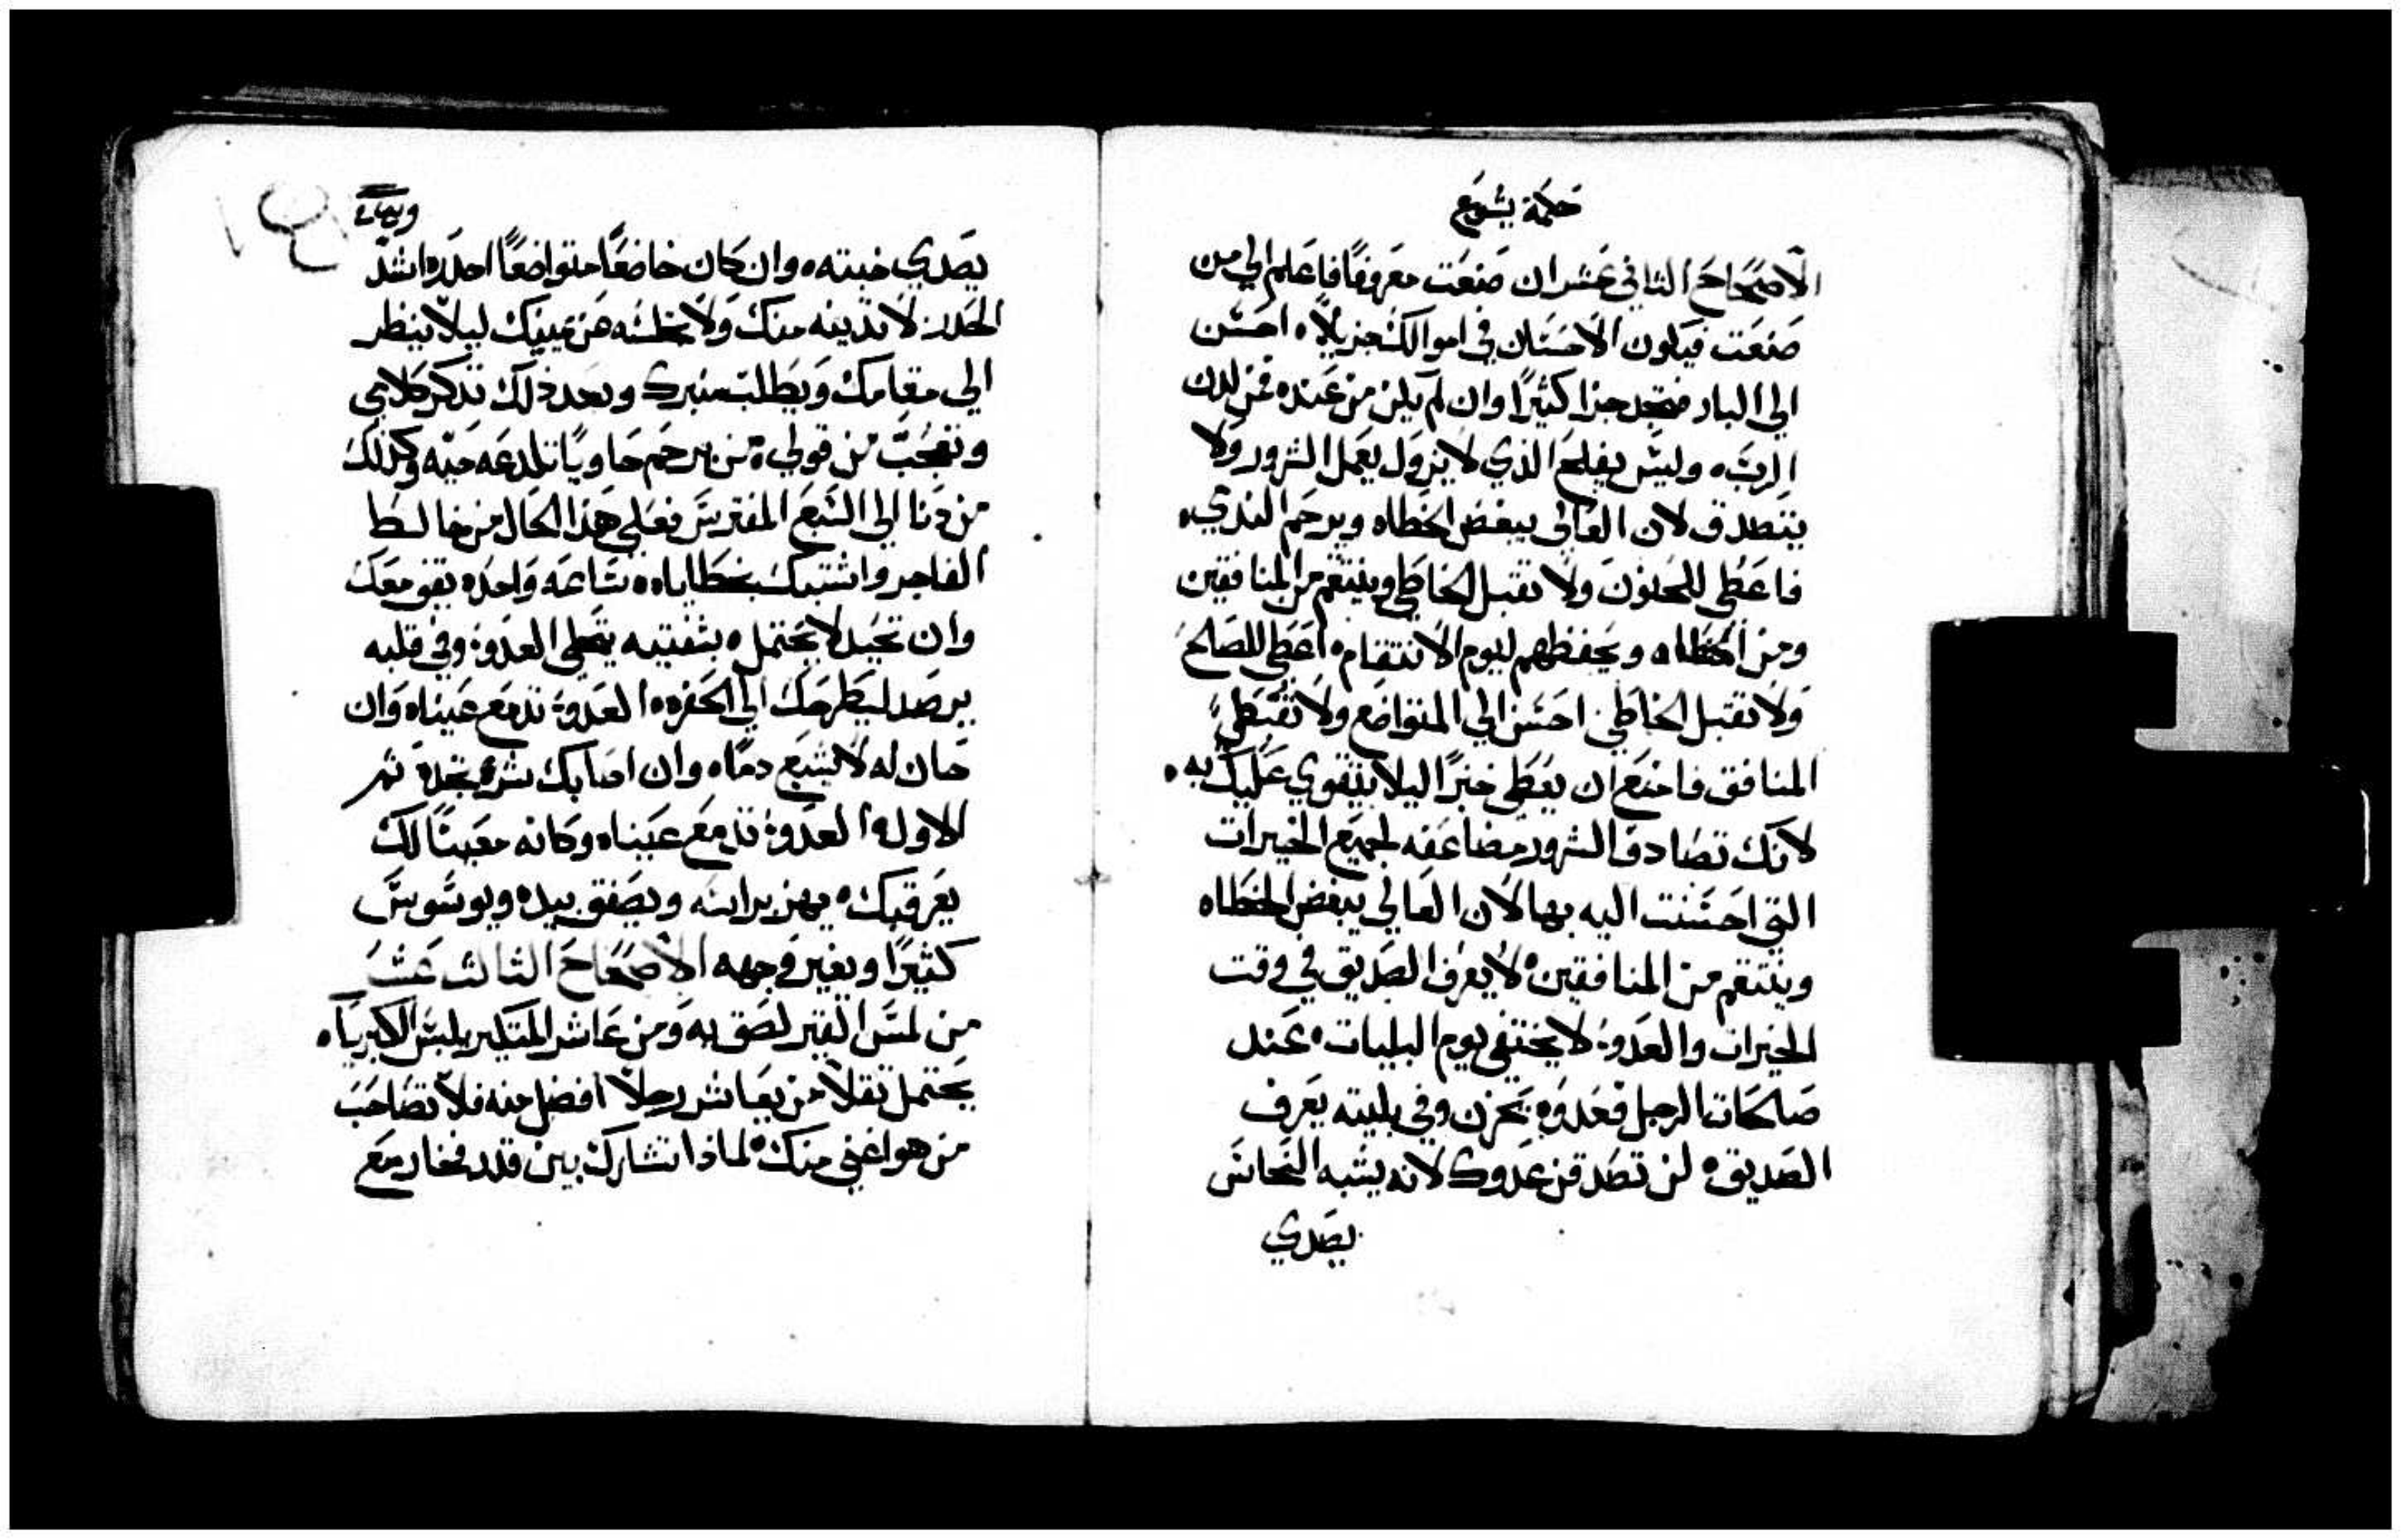 حكمة يشوع
الاصحاح الثاني عشر ان صنعت معروفًا فاعلم الي من
صنعت فيكون الاحسان في اموالك جزيلًا ٥ احسن
الي البار فتجد جزا كثيرًا وان لم يكن من عنده فمن لدن
الرب ٥ وليس يفلح الذي لا يزول يعمل الشرور ولا
يتصدق لان العالي يبغض الخطاه ويرحم الندي ٥
فاعطي للحنون ولا تقبل الخاطي وينتقم من المنافقين
ومن الخطاه ويحفظهم ليوم الانتقام ٥ اعطي للصالح
ولا تقبل الخاطي احسن الي المتواضع ولا تعطي
المنافق فامنع ان يعطي خبزًا ليلا يتقوي عليك به ٥
لانك تصادف الشرور مضاعفه لجميع الخيرات
التي احسنت اليه بها لان العالي يبغض الخطاه
وينتقم من المنافقين ٥ لا يعرف الصديق في وقت
الخيرات والعدو لا يختفي يوم البليات ٥ عند
صالحات الرجل فعدوه يحزن وفي بليته يعرف
الصديق ٥ لن تصدقن عدوك لانه يشبه النحاس
يصدي
يصدي خبثه ٥ وان كان خاضعًا متواضعًا احدره اشد
الحدر لا تدينه منك ولا تجلسه عن يمينك ليلا ينظر
الي مقامك ويطلب منبرك وبعد ذلك تدكر كلامي
وتعجب من قولي ٥ من يرحم حاويًا تلدعه حيه وكذلك
من دنا الي السبع المفترس فعلي هذا الحال من خالط
الفاجر واشتبك بخطاياه ٥ ساعه واحده يقف معك
وان تحيد لا يحتمل ٥ بشفتيه يحلي العدو وفي قلبه
يرصد ليطرحك الي الحفره ٥ العدو تدمع عيناه وان
حان له لا يشبع دمًا ٥ وان اصابك شر تجده ثم
الاول ٥ العدو تدمع عيناه وكانه معينًا لك
يعرقبك ٥ يهز براسه ويصفق بيده ويوسوس
كثيرًا ويغير وجهه الاصحاح الثالث عشر
من لمس القير لصق به ومن عاشر المتكبر يلبس الكبرياء
يحتمل ثقلًا من يعاشر رجلًا افضل منه فلا تصاحب
من هو اغني منك ٥ لماذا تشارك بين قدر فخار مع